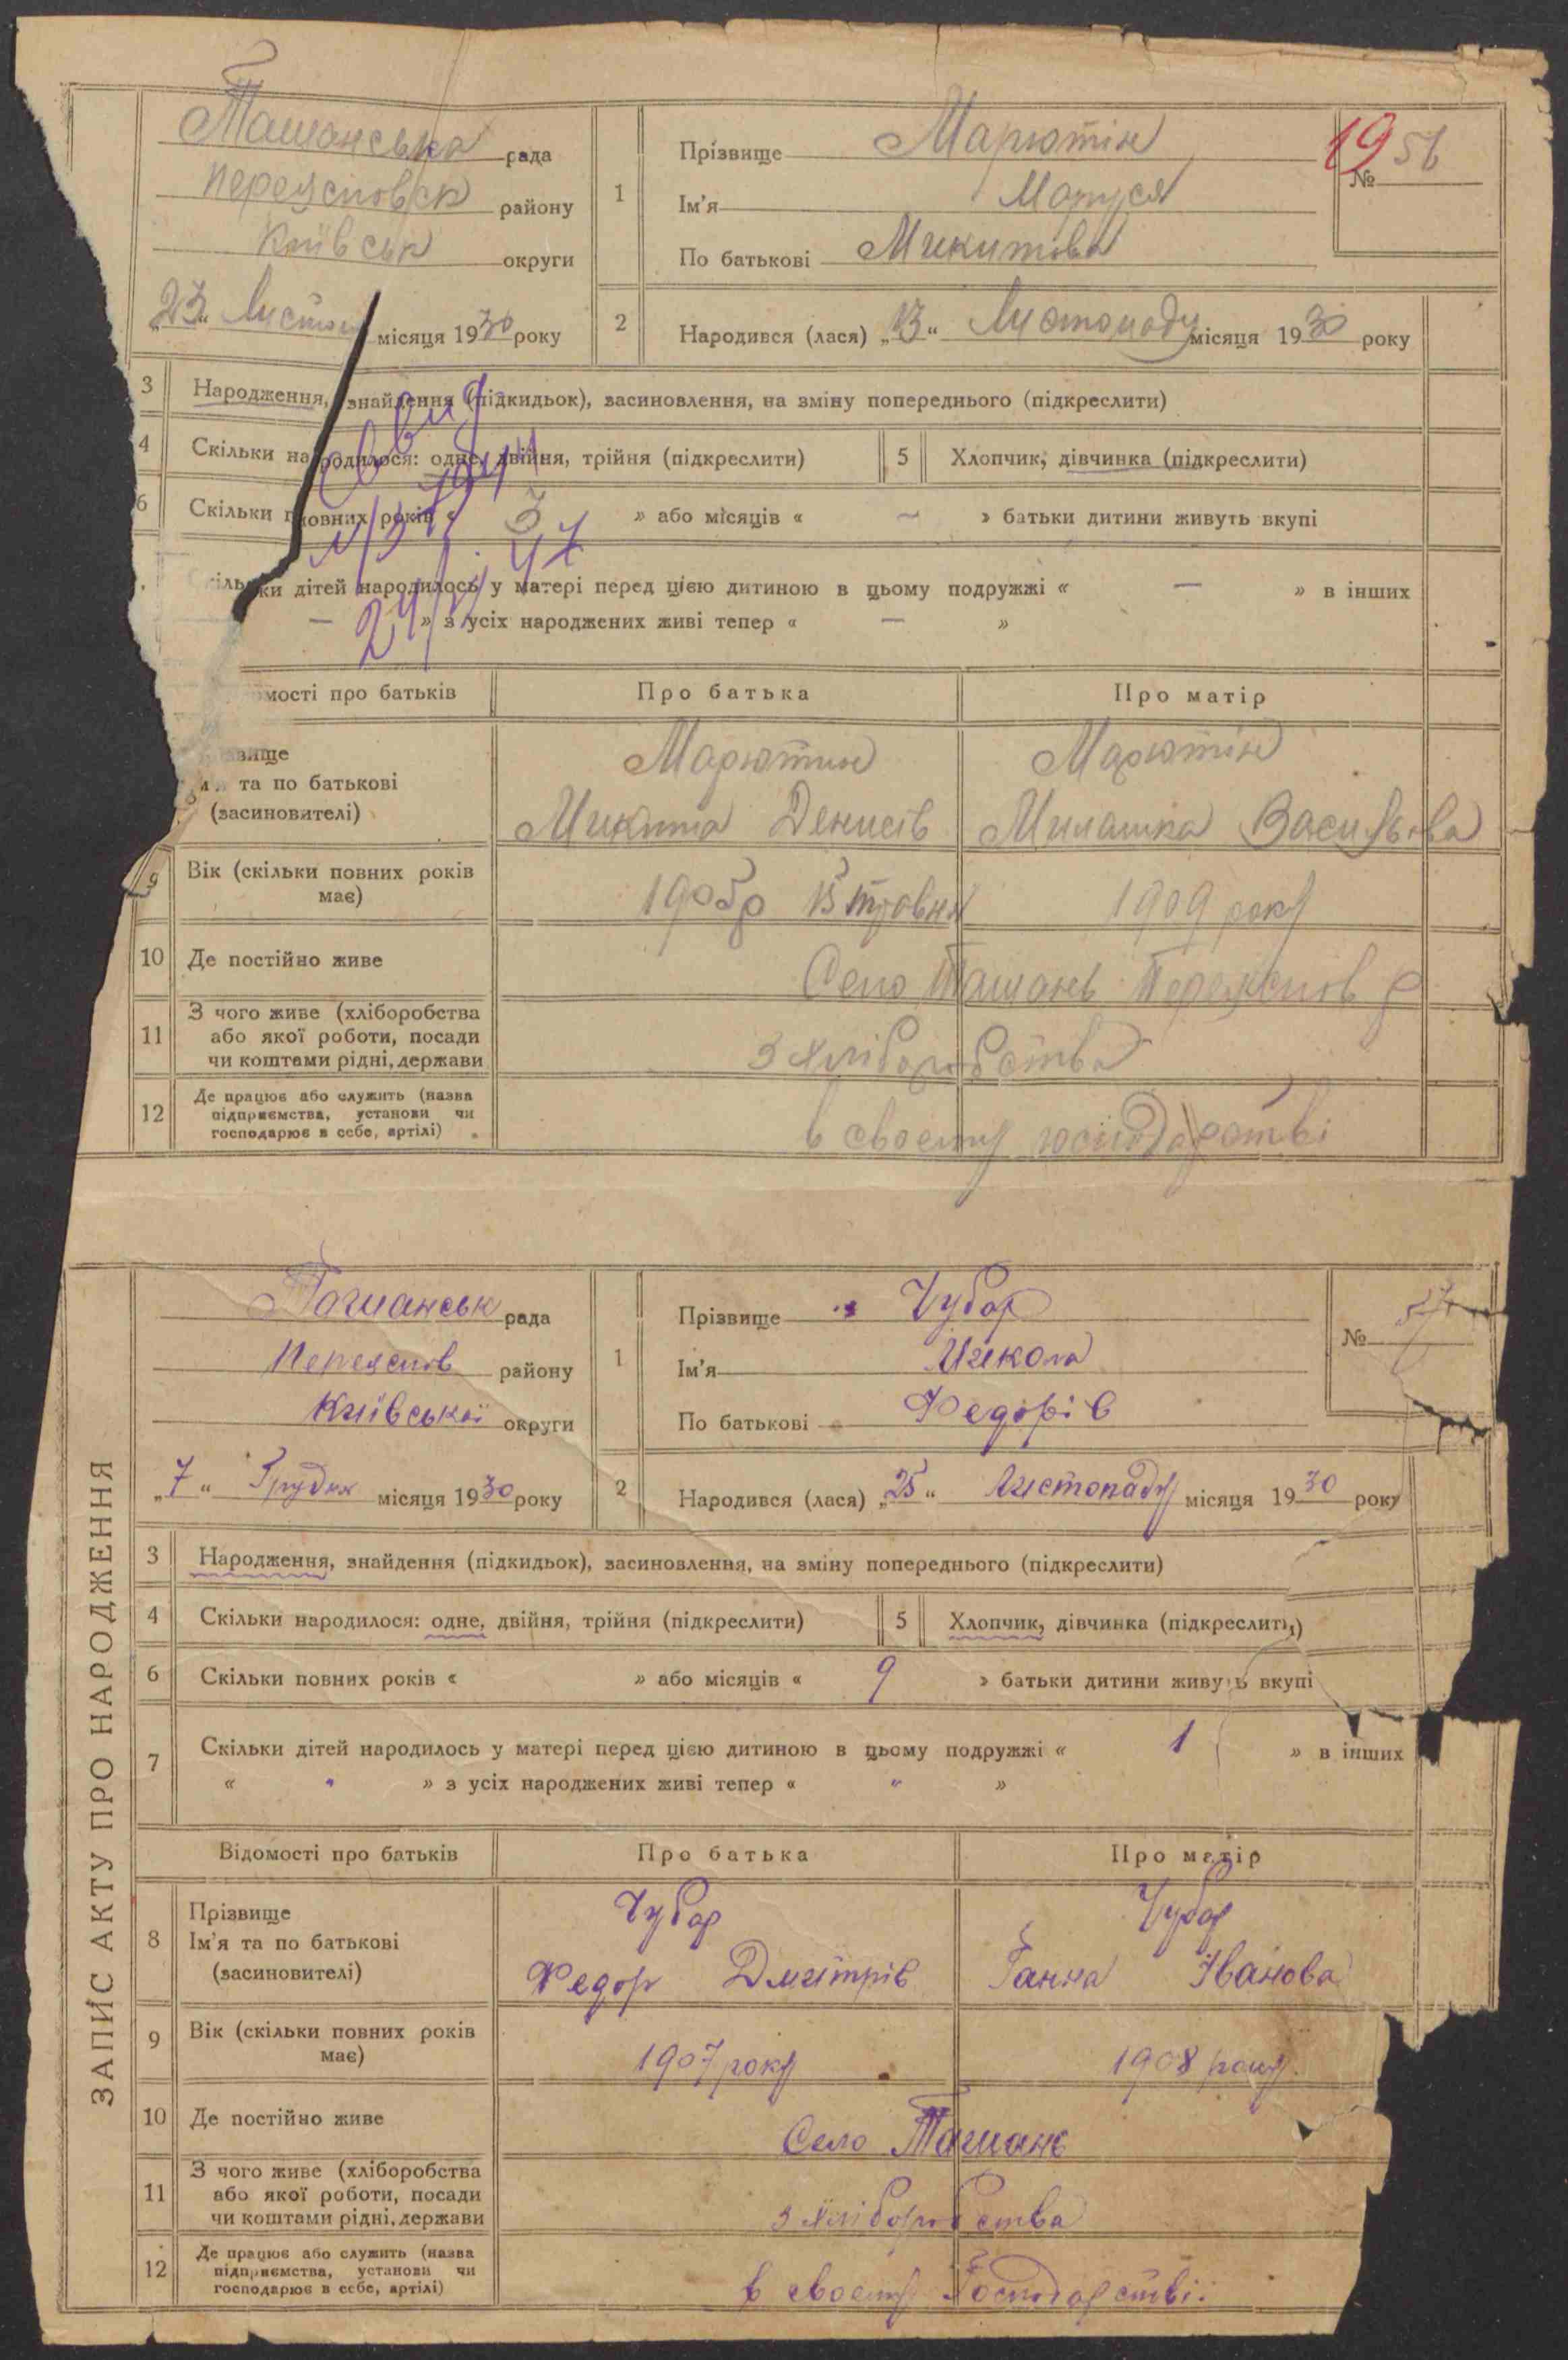 Ташанська рада
Переяславськ району
Київськ округи
„23“ Листоп місяця 1930 року
1
Прізвище Марютін
Ім'я Маруся
По батькові Микитова
19
№ 56
2
Народився (лася) „13“ Листопаду місяця 1930 року
3 Народження, знайдення (підкидьок), засиновлення, на зміну попереднього (підкреслити)
4 Скільки народилося: одне, двійня, трійня (підкреслити) 5 Хлопчик, дівчинка (підкреслити)
6 Скільки повних років « 3 » або місяців « – » батьки дитини живуть вкупі
Скільки дітей народилось у матері перед цією дитиною в цьому подружжі « — » в інших
— » з усіх народжених живі тепер « — »
омості про батьків Про батька Про матір
звище
м'я та по батькові
(засиновителі)
Марютин
Микита Денисів
Марютін
Милашка Васильова
9 Вік (скільки повних років має)
1905р 15 травня 1909 року
10 Де постійно живе Село Ташань Переяслов р
11 З чого живе (хліборобства або якої роботи, посади чи коштами рідні, держави
З хліборобства
12 Де працює або служить (назва підприємства, установи чи господарює в себе, артілі)
в своєму господарстві
ЗАПИС АКТУ ПРО НАРОДЖЕННЯ
Ташанськ рада
Переяслов району
Київської округи
„7“ Грудня місяця 1930 року
1
Прізвище Чубар
Ім'я Микола
По батькові Федорів
№ 57
2
Народився (лася) „25“ Листопаду місяця 1930 року
3 Народження, знайдення (підкидьок), засиновлення, на зміну попереднього (підкреслити)
4 Скільки народилося: одне, двійня, трійня (підкреслити) 5 Хлопчик, дівчинка (підкреслити)
6 Скільки повних років « » або місяців « 9 » батьки дитини живуть вкупі
7 Скільки дітей народилось у матері перед цією дитиною в цьому подружжі « 1 » в інших
« " » з усіх народжених живі тепер « " »
Відомості про батьків Про батька Про матір
8 Прізвище
Ім'я та по батькові
(засиновителі)
Чубар
Федор Дмитрів
Чубар
Ганна Іванова
9 Вік (скільки повних років має)
1907 року 1908 року
10 Де постійно живе Село Ташань
11 З чого живе (хліборобства або якої роботи, посади чи коштами рідні, держави
з хліборобства
12 Де працює або служить (назва підприємства, установи чи господарює в себе, артілі)
в своєму Господарстві.